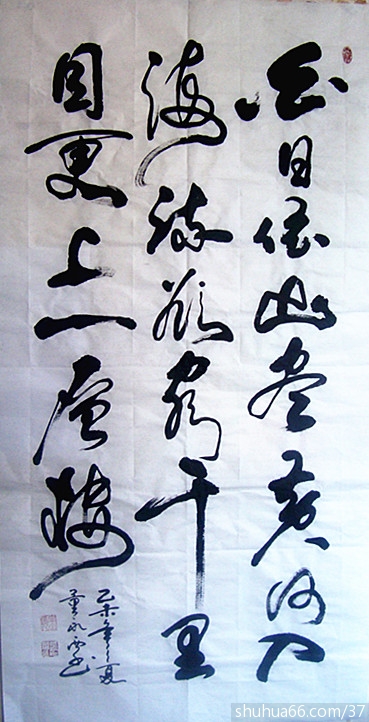 白日依山盡黄河入
海流欲窮千里
目更上一層樓
乙未年夏
shuhua66.com/37